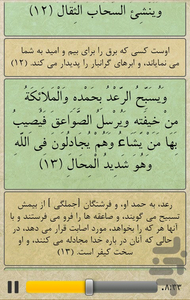 وَيُنشِئُ السَّحَابَ الثِّقَالَ (١٢)
اوست کسی که برق را برای بیم و امید به شما
می نمایاند، و ابرهای گرانبار را پدیدار می کند. (۱۲)
وَيُسَبِّحُ الرَّعْدُ بِحَمْدِهِ وَالْمَلَائِكَةُ
مِنْ خِيفَتِهِ وَيُرْسِلُ الصَّوَاعِقَ فَيُصِيبُ
بِهَا مَنْ يَشَاءُ وَهُمْ يُجَادِلُونَ فِي اللَّهِ
وَهُوَ شَدِيدُ الْمِحَالِ (١٣)
رعد، به حمد او، و فرشتگان [جملگی] از بیمش
تسبیح می گویند، و صاعقه ها را فرو می فرستند و با
آنها هر که را بخواهد، مورد اصابت قرار می دهد، در
حالی که آنان در باره خدا مجادله می کنند، و او
سخت کیفر است. (۱۳)
۰۸:۳۳